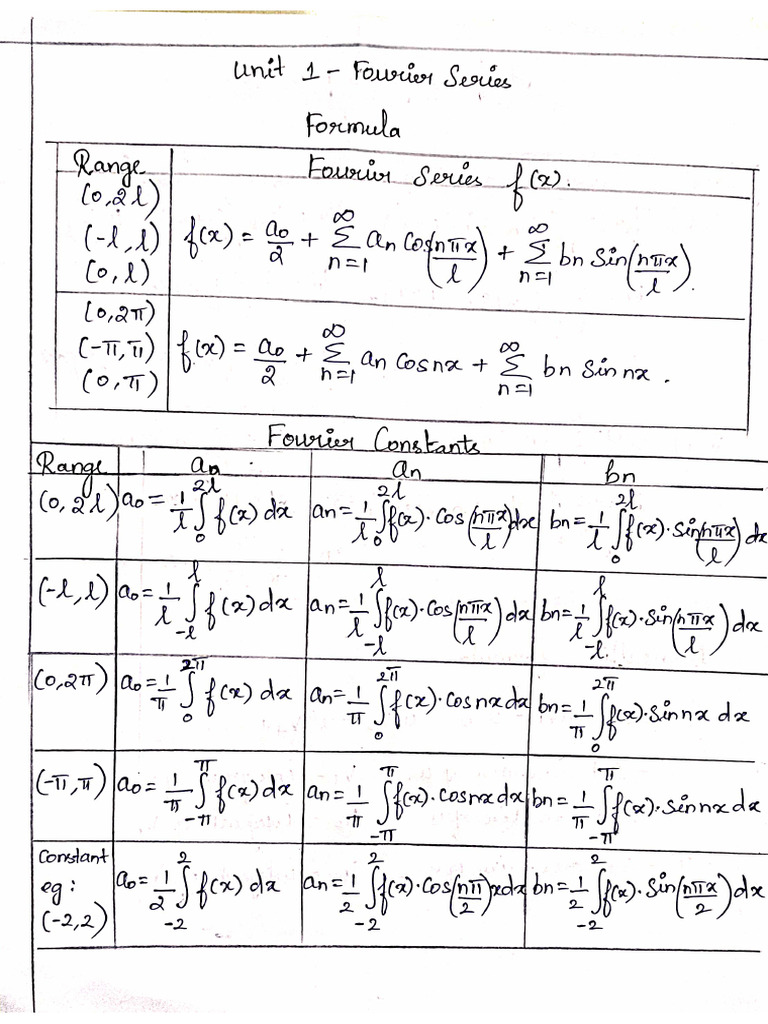 Unit 1 - Fourier Series
Formula
Range Fourier Series f(x).
(0, 2l)
(-l, l) f(x) = a0/2 + ∞Σn=1 an Cos(nπx/l) + ∞Σn=1 bn Sin(nπx/l).
(0, l)
(0, 2π)
(-π, π) f(x) = a0/2 + ∞Σn=1 an Cosnx + ∞Σn=1 bn Sin nx.
(0, π)
Fourier Constants
Range an an bn
(0, 2l) a0 = 1/l ∫0^2l f(x) dx an = 1/l ∫0^2l f(x)·Cos(nπx/l)dx bn = 1/l ∫0^2l f(x)·Sin(nπx/l) dx
(-l, l) a0 = 1/l ∫-l^l f(x) dx an = 1/l ∫-l^l f(x)·Cos(nπx/l) dx bn = 1/l ∫-l^l f(x)·Sin(nπx/l) dx
(0, 2π) a0 = 1/π ∫0^2π f(x) dx an = 1/π ∫0^2π f(x)·Cosnx dx bn = 1/π ∫0^2π f(x)·Sinnx dx
(-π, π) a0 = 1/π ∫-π^π f(x) dx an = 1/π ∫-π^π f(x)·Cosnx dx bn = 1/π ∫-π^π f(x)·Sinnx dx
Constant
eg: a0 = 1/2 ∫-2^2 f(x) dx an = 1/2 ∫-2^2 f(x)·Cos(nπ/2)xdx bn = 1/2 ∫-2^2 f(x)·Sin(nπx/2) dx
(-2, 2)